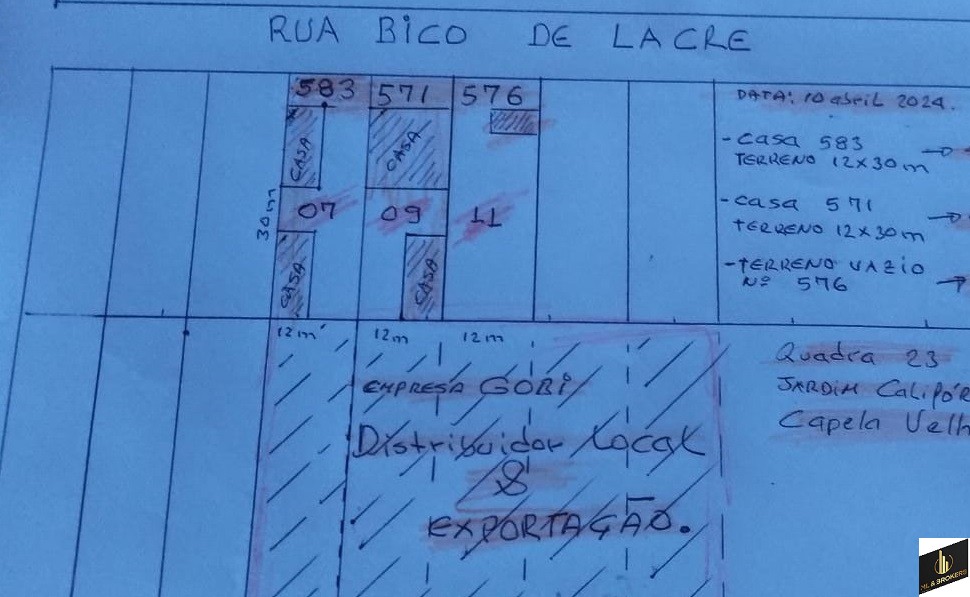 RUA BICO DE LACRE
583 571 576
CASA
CASA
07 09 11
30m
CASA
CASA
12m 12m 12m
EMPRESA GOBI
Distribuidor Local
&
EXPORTAÇÃO.
DATA: 10 abril 2024.
- Casa 583
TERRENO 12x30m
- Casa 571
TERRENO 12x30m
- TERRENO VAZIO
Nº 576
Quadra 23
JARDIM Calipór
Capela Velh
& BROKERS